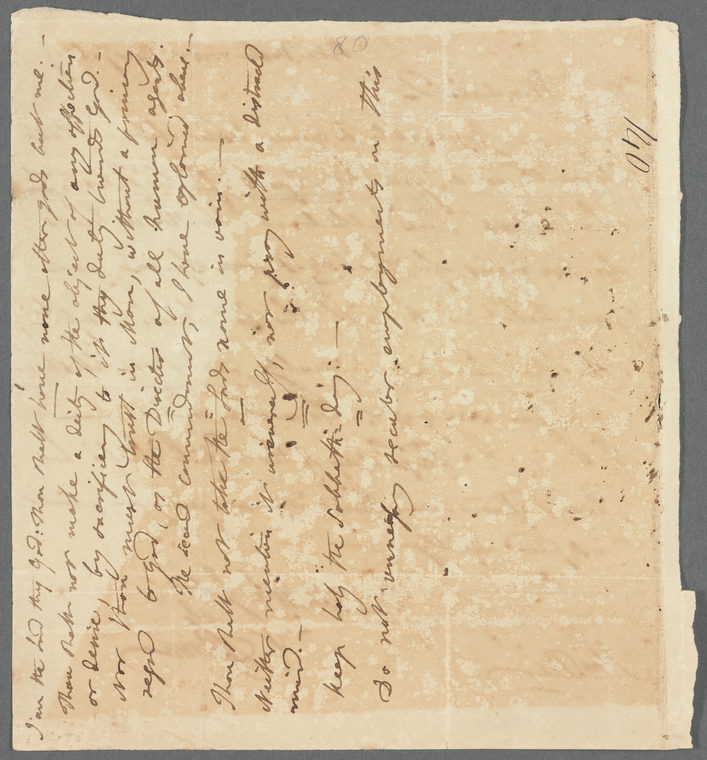 I am the Lord thy God: Thou shalt have none other gods but me.—
Thou shalt not make a deity of the object of any affection
or desire, by sacrificing to it thy duty towards God.—
Nor Thou must trust in Man, without a primary
regd to God, as the Director of all human agents.
The second commandmt I have explained above.—
Thou shalt not take the Lords name in vain.—
Neither mention it irreverently, nor pray with a distracted
mind.—
Keep holy the Sabbath-day.—
Do not unnecessy secular employments on this
140
80